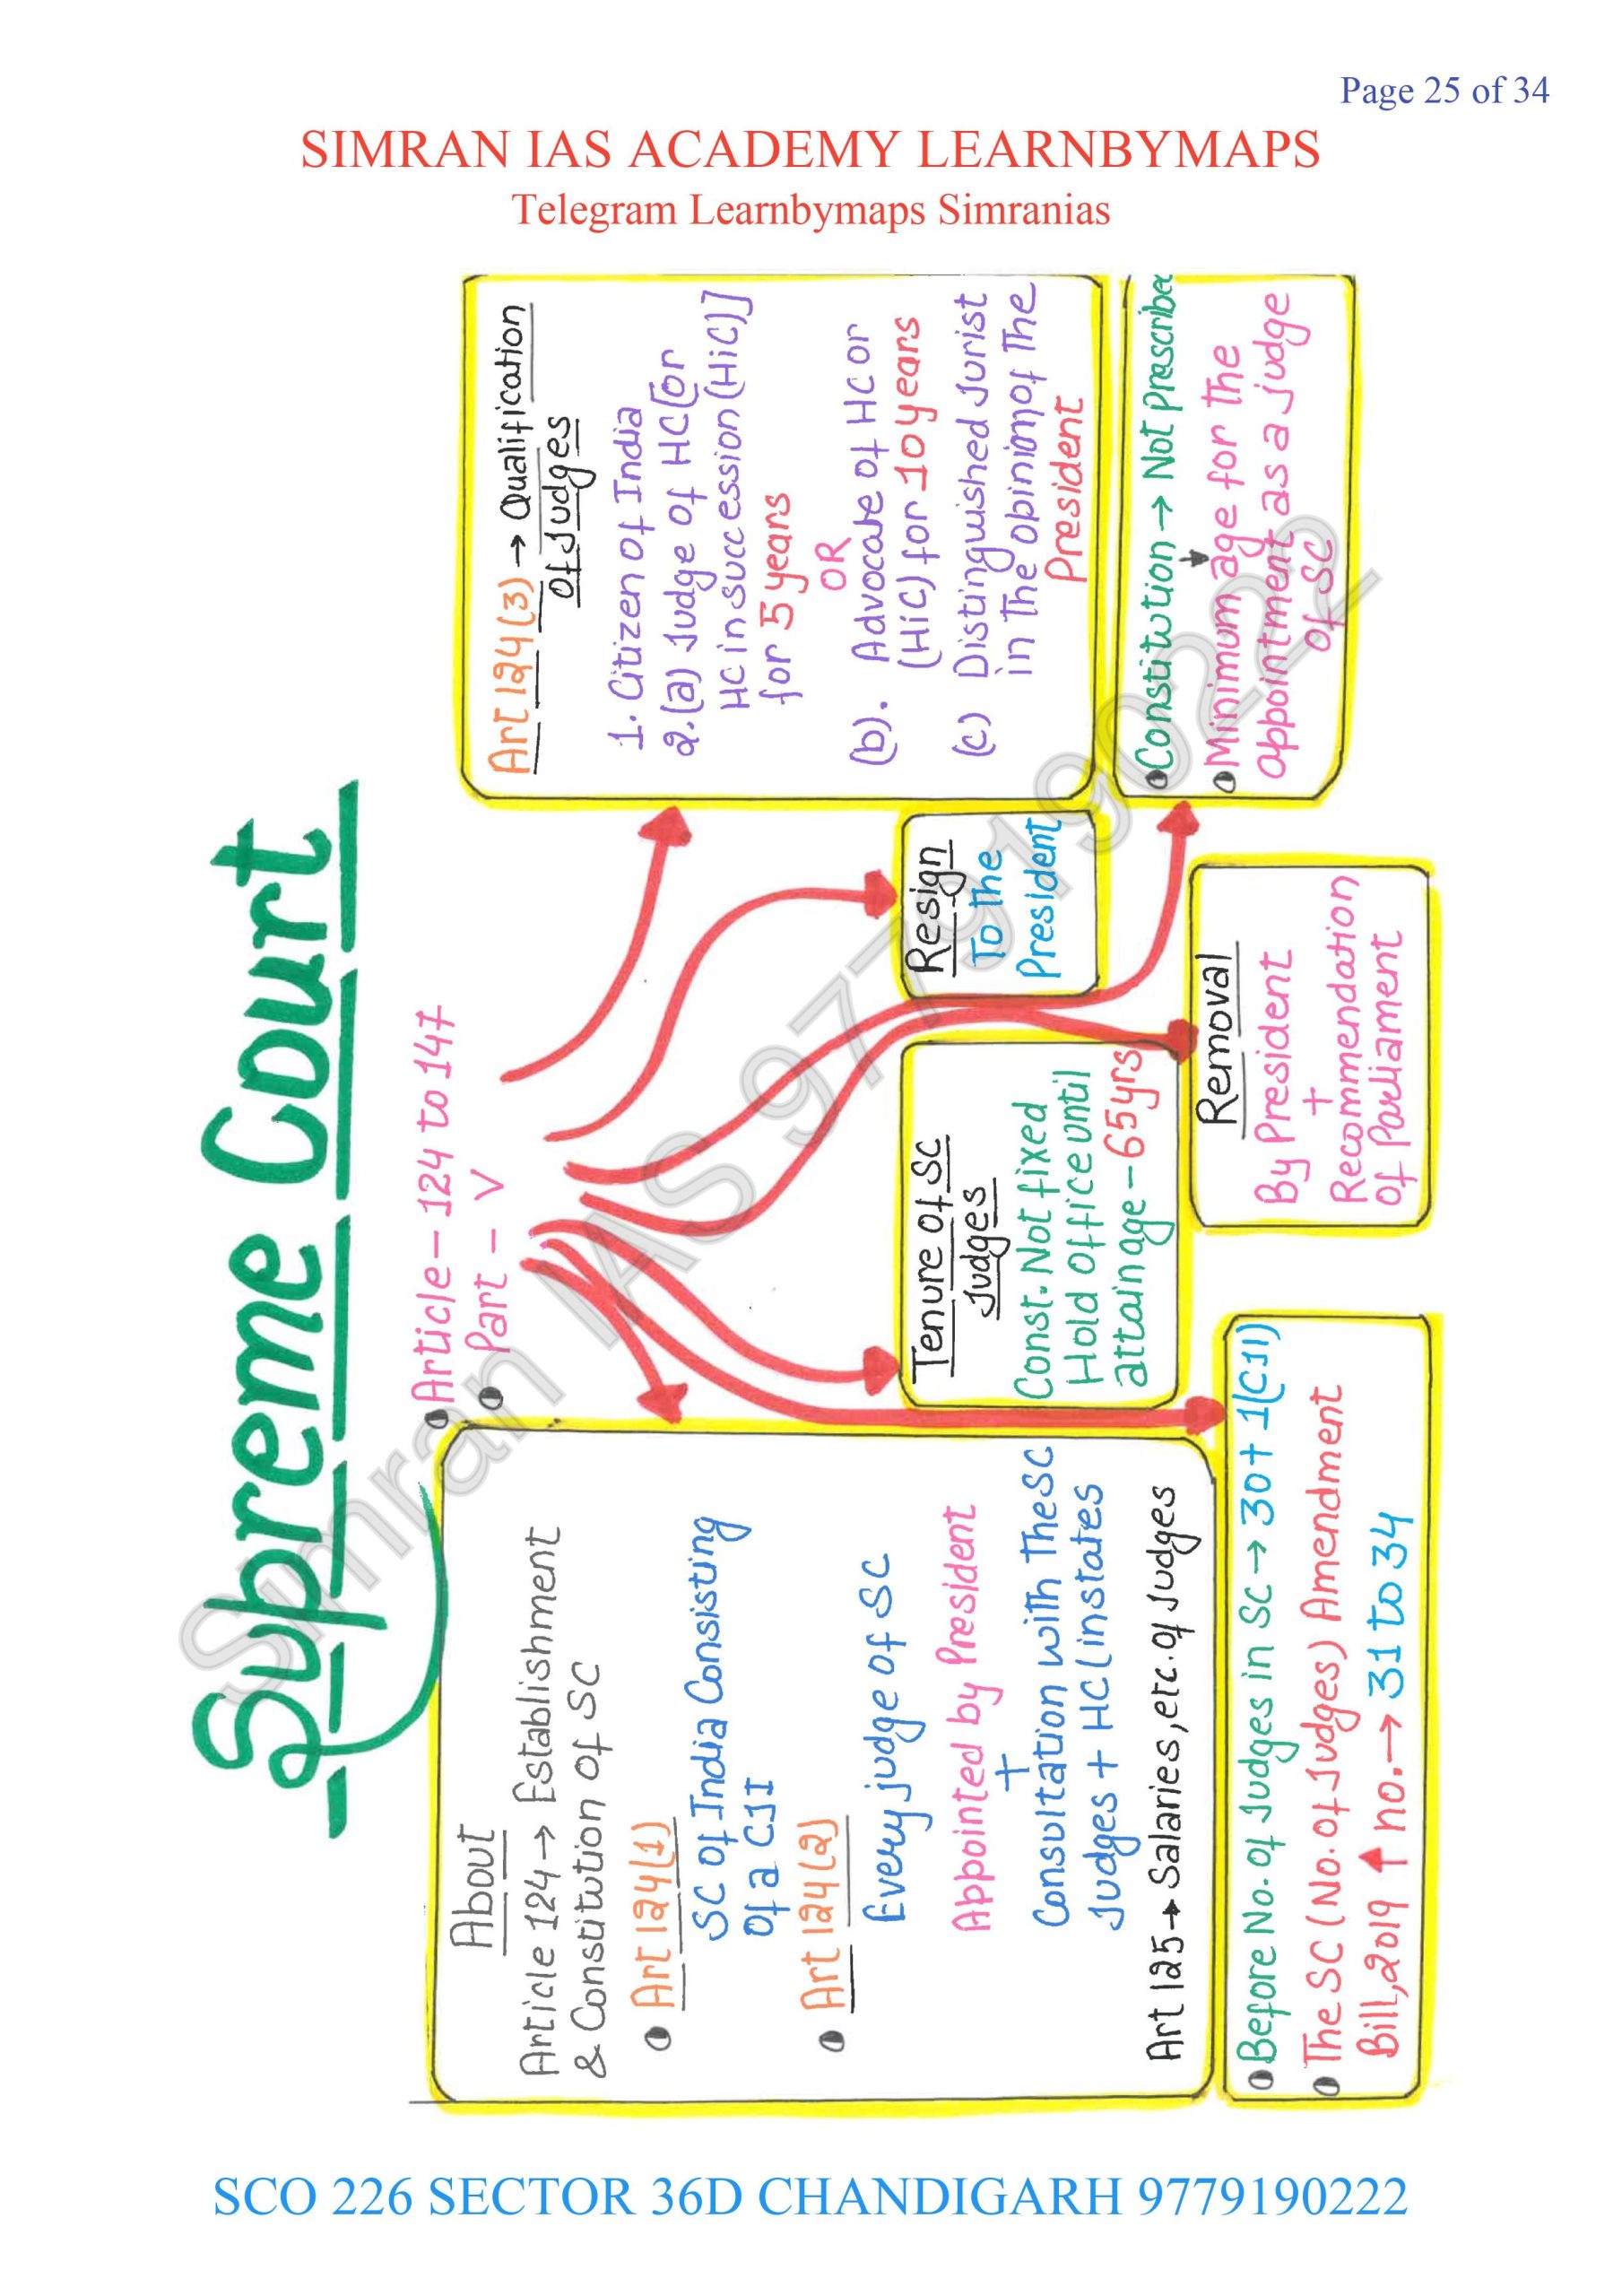 Page 25 of 34
SIMRAN IAS ACADEMY LEARNBYMAPS
Telegram Learnbymaps Simranias
Supreme Court
Article - 124 to 147
Part - V
About
Article 124 → Establishment
& Constitution of SC
Art 124(1)
SC of India Consisting
of a CJI
Art 124(2)
Every judge of SC
Appointed by President
+
Consultation with The SC
Judges + HC (in states
Art 125 → Salaries, etc. of Judges
Before No. of Judges in SC → 30 + 1(CJI)
The SC (No. of Judges) Amendment
Bill, 2019 ↑ no. → 31 to 34
Tenure of SC
Judges
Const. Not fixed
Hold office until
attain age - 65yrs
Removal
By President
+
Recommendation
of Parliament
Resign
To the
President
Art 124(3) → Qualification
of Judges
1. Citizen of India
2. (a) Judge of HC [or
HC in succession (HiC)]
for 5 years
OR
(b). Advocate of HC or
(HiC) for 10 years
(c) Distinguished Jurist
in the opinion of The
President
Constitution → Not Prescribe
Minimum age for the
appointment as a judge
of SC
Simran IAS 9779190222
SCO 226 SECTOR 36D CHANDIGARH 9779190222